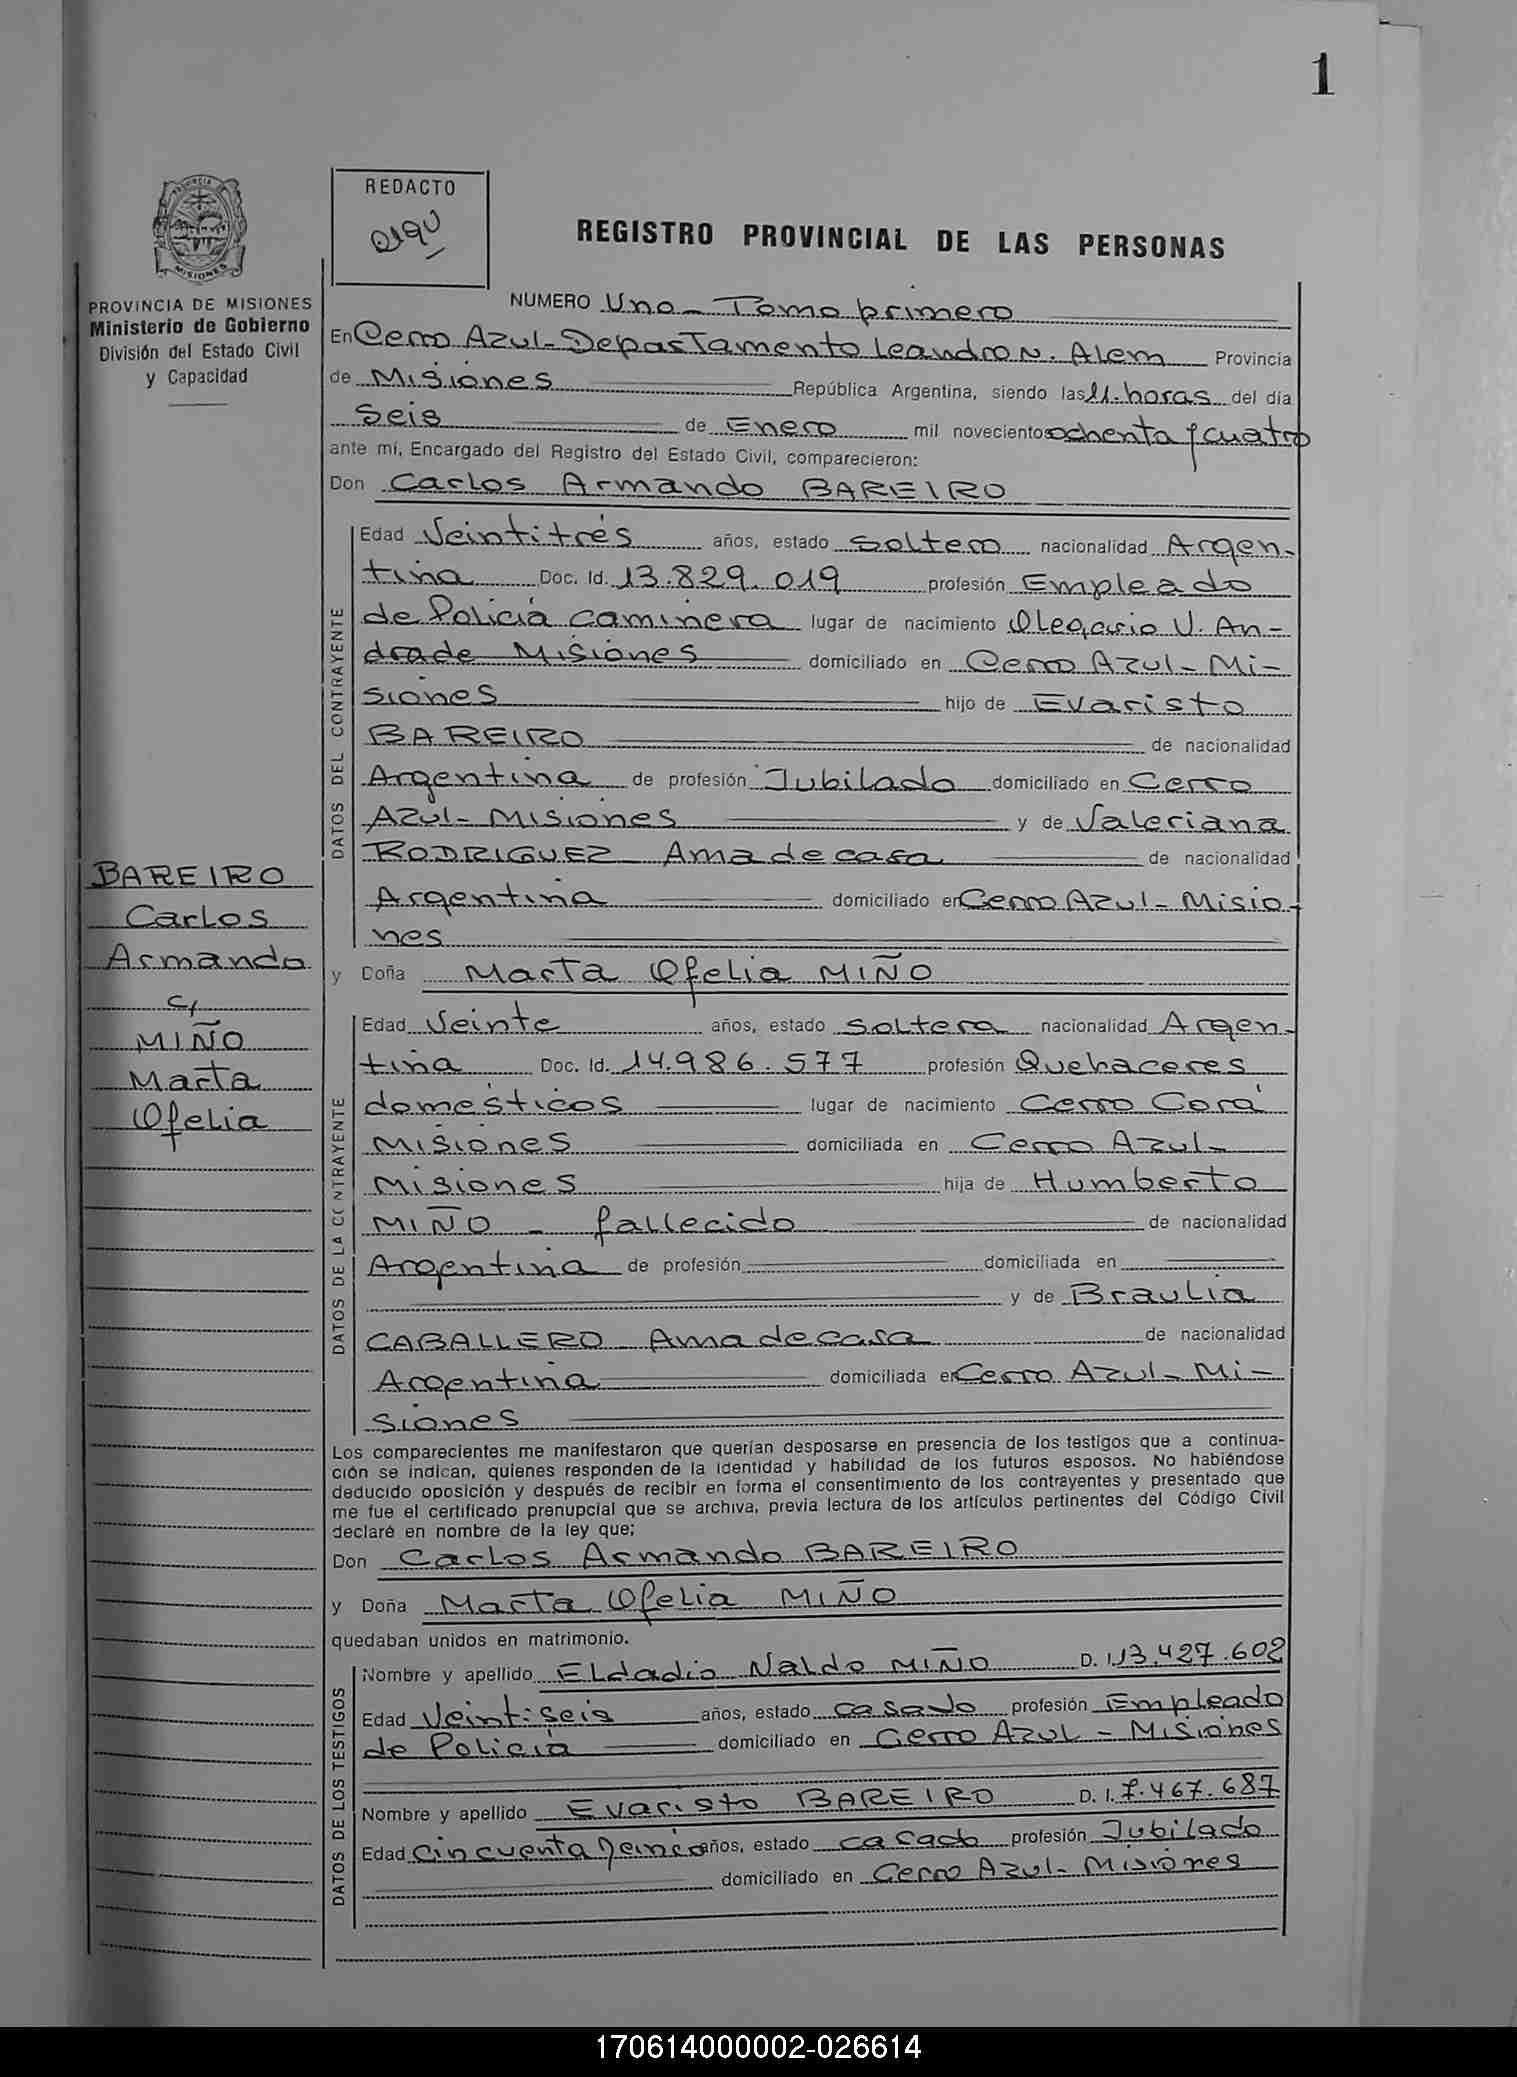 1
PROVINCIA
MISIONES
PROVINCIA DE MISIONES
Ministerio de Gobierno
División del Estado Civil
y Capacidad
REDACTO
REGISTRO PROVINCIAL DE LAS PERSONAS
NUMERO Uno - Tomo primero
En Cerro Azul - Departamento Leandro N. Alem Provincia
de Misiones República Argentina, siendo las 11. horas del día
Seis de Enero mil novecientos ochenta y cuatro
ante mí, Encargado del Registro del Estado Civil, comparecieron:
Don Carlos Armando BAREIRO
DATOS DEL CONTRAYENTE
Edad Veintitrés años, estado Soltero nacionalidad Argen-
tina Doc. Id. 13.829.019 profesión Empleado
de Policía Caminera lugar de nacimiento Olegario V. An-
drade Misiones domiciliado en Cerro Azul - Mi-
siones hijo de Evaristo
BAREIRO de nacionalidad
Argentina de profesión Jubilado domiciliado en Cerro
Azul - Misiones y de Valeriana
RODRIGUEZ Ama de casa de nacionalidad
Argentina domiciliado en Cerro Azul - Misio-
nes
BAREIRO
Carlos
Armando
c/
MIÑO
Marta
Ofelia
y Doña Marta Ofelia MIÑO
DATOS DE LA CONTRAYENTE
Edad Veinte años, estado Soltera nacionalidad Argen-
tina Doc. Id. 14.986.577 profesión Quehaceres
domésticos lugar de nacimiento Cerro Corá
Misiones domiciliada en Cerro Azul -
Misiones hija de Humberto
MIÑO - fallecido de nacionalidad
Argentina de profesión domiciliada en
y de Braulia
CABALLERO Ama de casa de nacionalidad
Argentina domiciliada en Cerro Azul - Mi-
siones
Los comparecientes me manifestaron que querían desposarse en presencia de los testigos que a continua-
ción se indican, quienes responden de la identidad y habilidad de los futuros esposos. No habiéndose
deducido oposición y después de recibir en forma el consentimiento de los contrayentes y presentado que
me fue el certificado prenupcial que se archiva, previa lectura de los artículos pertinentes del Código Civil
declaré en nombre de la ley que;
Don Carlos Armando BAREIRO
y Doña Marta Ofelia MIÑO
quedaban unidos en matrimonio.
DATOS DE LOS TESTIGOS
Nombre y apellido Eldadio Naldo MIÑO D. I. 13.427.602
Edad Veintiseis años, estado casado profesión Empleado
de Policía domiciliado en Cerro Azul - Misiones
Nombre y apellido Evaristo BAREIRO D. I. 7.467.687
Edad Cincuenta años, estado casado profesión Jubilado
domiciliado en Cerro Azul - Misiones
170614000002-026614